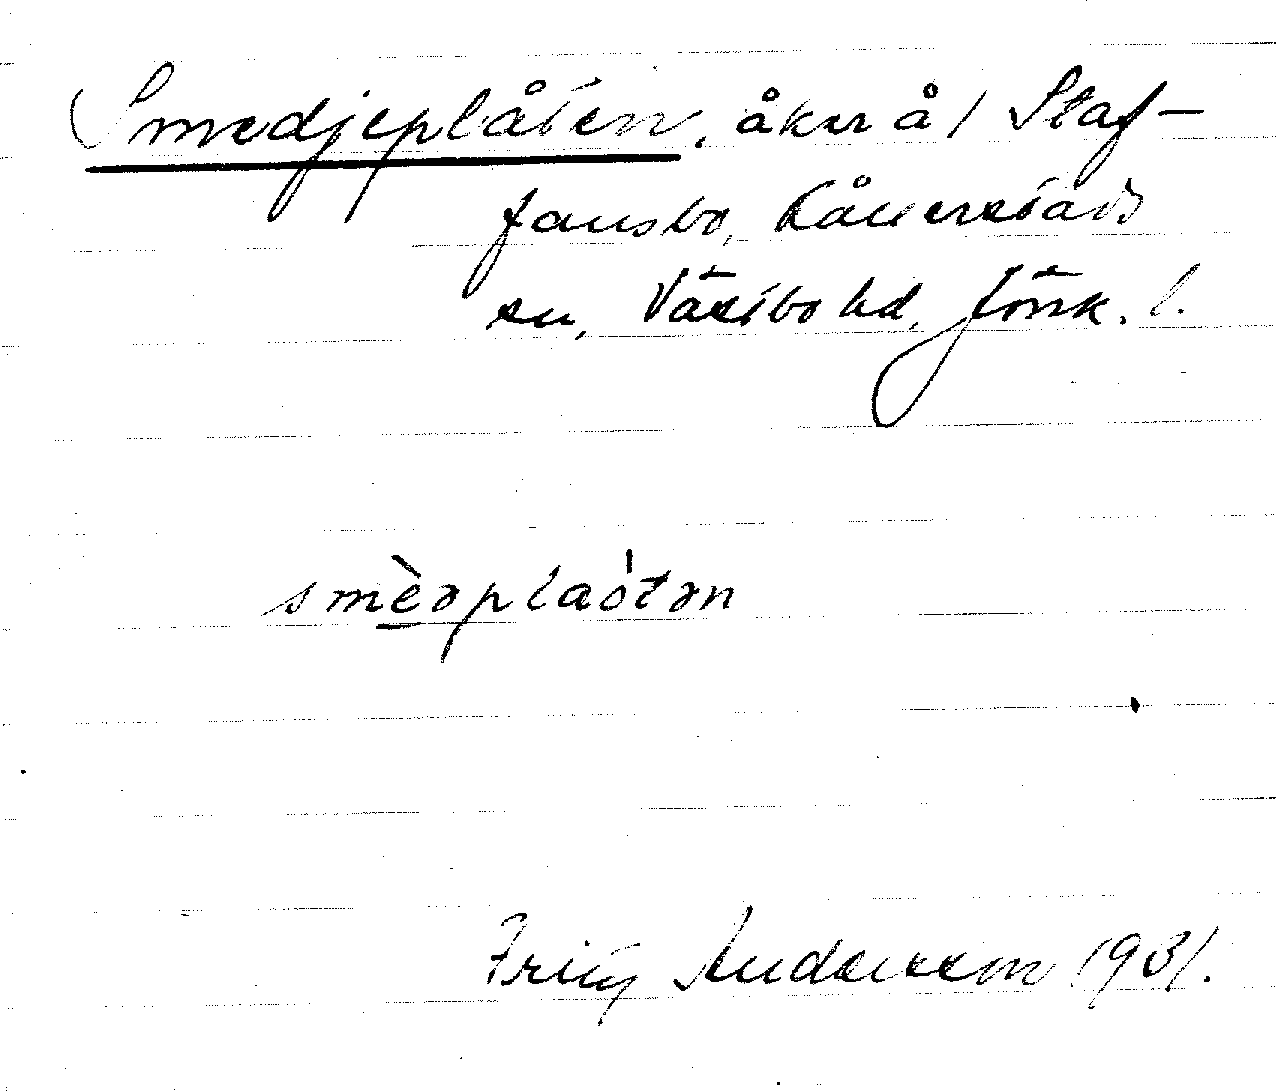 Smedjeplåten, åker å 1 Staf-
fansbo, Kållerstads
sn, Västbo hd, Jönk. l.
smèəplaótən
Fritz Andersson 1931.